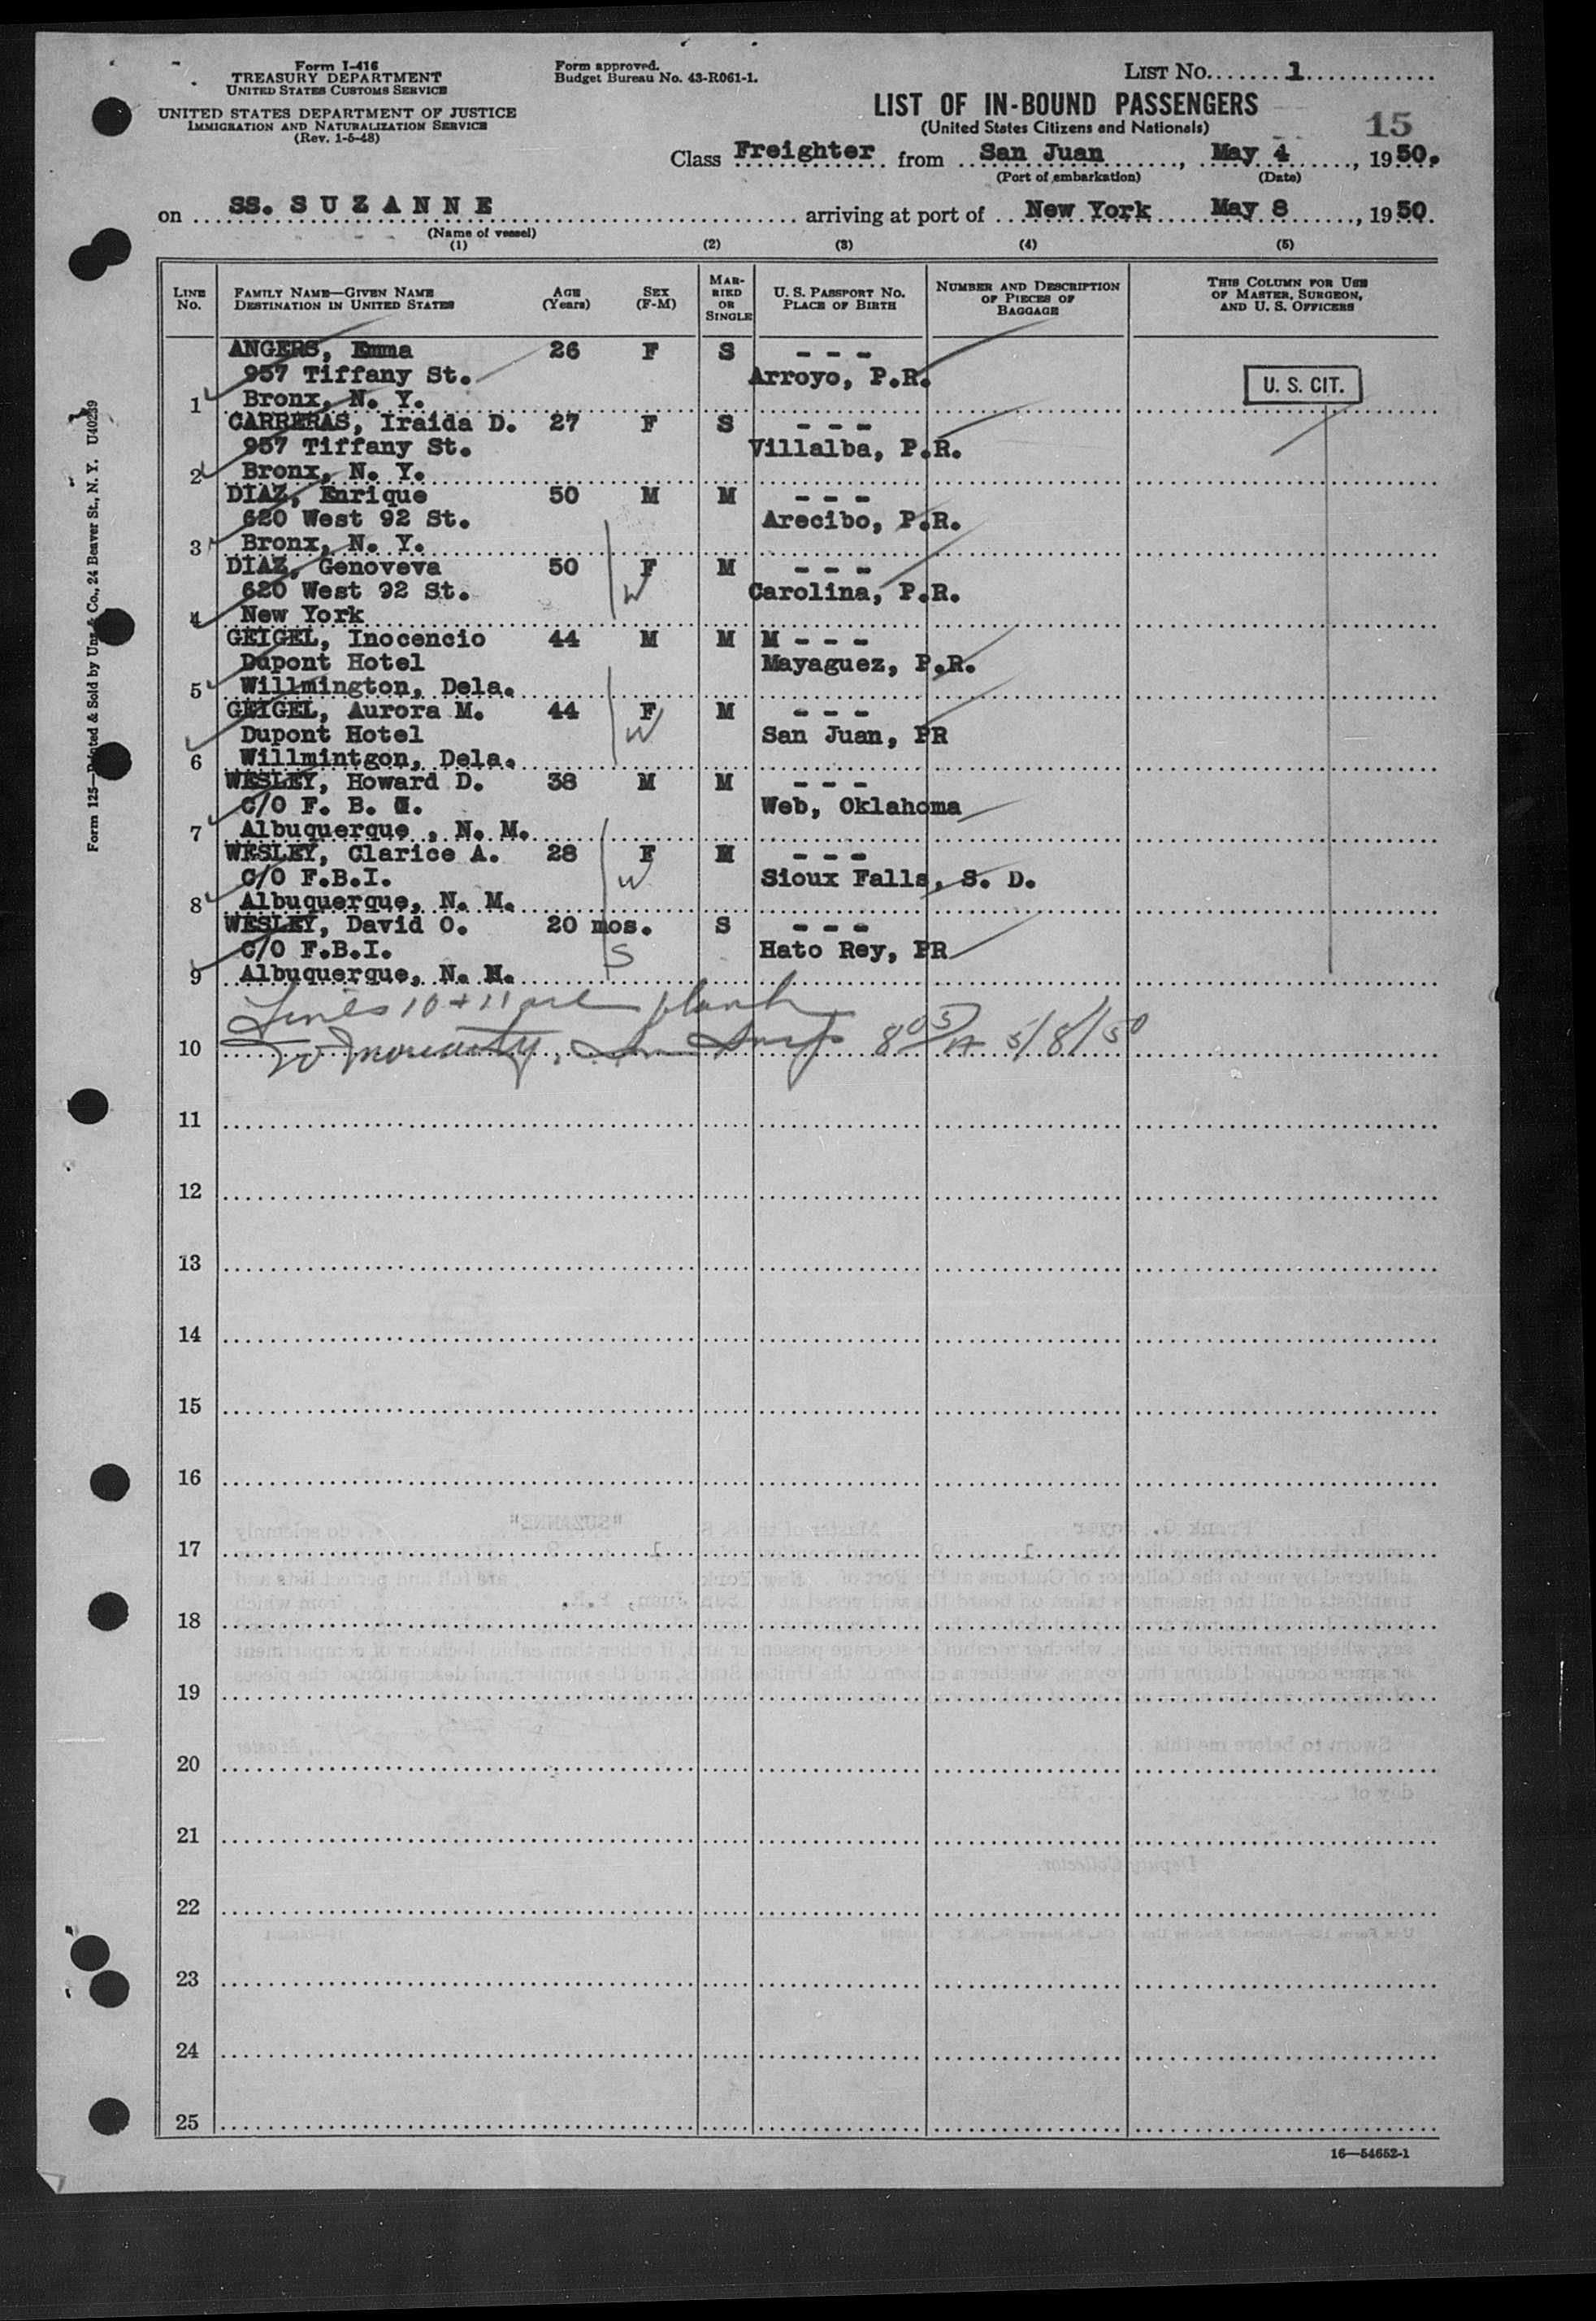 Form I-416
TREASURY DEPARTMENT
UNITED STATES CUSTOMS SERVICE
UNITED STATES DEPARTMENT OF JUSTICE
IMMIGRATION AND NATURALIZATION SERVICE
(Rev. 1-5-48)
Form approved.
Budget Bureau No. 43-R061-1.
LIST No. 1
LIST OF IN-BOUND PASSENGERS
(United States Citizens and Nationals)
15
Class Freighter from San Juan, May 4, 1950.
(Port of embarkation) (Date)
on SS. S U Z A N N E arriving at port of New York May 8, 1950.
(Name of vessel)
(1) (2) (3) (4) (5)
LINE No. FAMILY NAME—GIVEN NAME DESTINATION IN UNITED STATES AGE (Years) SEX (F-M) MARRIED OR SINGLE U. S. PASSPORT No. PLACE OF BIRTH NUMBER AND DESCRIPTION OF PIECES OF BAGGAGE THIS COLUMN FOR USE OF MASTER, SURGEON, AND U. S. OFFICERS
ANGERS, Emma 26 F S - - -
957 Tiffany St. Arroyo, P.R. U. S. CIT.
1 Bronx, N. Y.
CARRERAS, Iraida D. 27 F S - - -
957 Tiffany St. Villalba, P.R.
2 Bronx, N. Y.
DIAZ, Enrique 50 M M - - -
620 West 92 St. Arecibo, P.R.
3 Bronx, N. Y.
DIAZ, Genoveva 50 F M - - -
620 West 92 St. W Carolina, P.R.
4 New York
GEIGEL, Inocencio 44 M M M - - -
Dupont Hotel Mayaguez, P.R.
5 Willmington, Dela.
GEIGEL, Aurora M. 44 F M - - -
Dupont Hotel W San Juan, PR
6 Willmintgon, Dela.
WESLEY, Howard D. 38 M M - - -
C/O F. B. I. Web, Oklahoma
7 Albuquerque , N. M.
WESLEY, Clarice A. 28 F M - - -
C/O F.B.I. W Sioux Falls, S. D.
8 Albuquerque, N. M.
WESLEY, David O. 20 mos. S - - -
C/O F.B.I. S Hato Rey, PR
9 Albuquerque, N. M.
Lines 10 + 11 are blank
10 805 A 5/8/50
11
12
13
14
15
16
17
18
19
20
21
22
23
24
25
16—54652-1
Form 125—Printed & Sold by Unz & Co., 24 Beaver St., N. Y. U40239